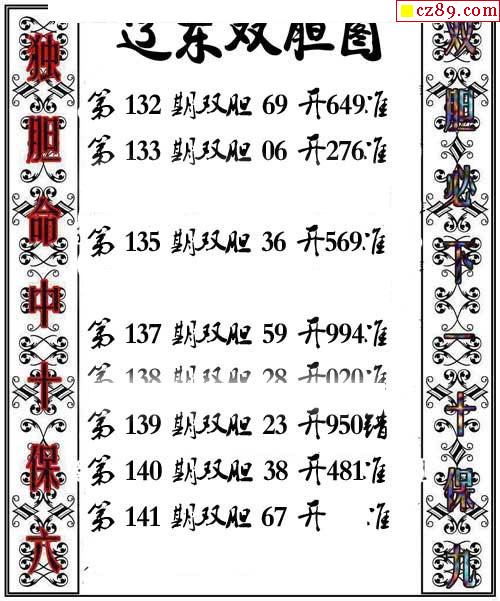 cz89.com
辽东双胆图
独胆命中十保六
第 132 期双胆 69 开649准
第 133 期双胆 06 开276准
第 135 期双胆 36 开569准
第 137 期双胆 59 开994准
第 138 期双胆 28 开020准
第 139 期双胆 23 开950错
第 140 期双胆 38 开481准
第 141 期双胆 67 开 准
双胆必下一十保九